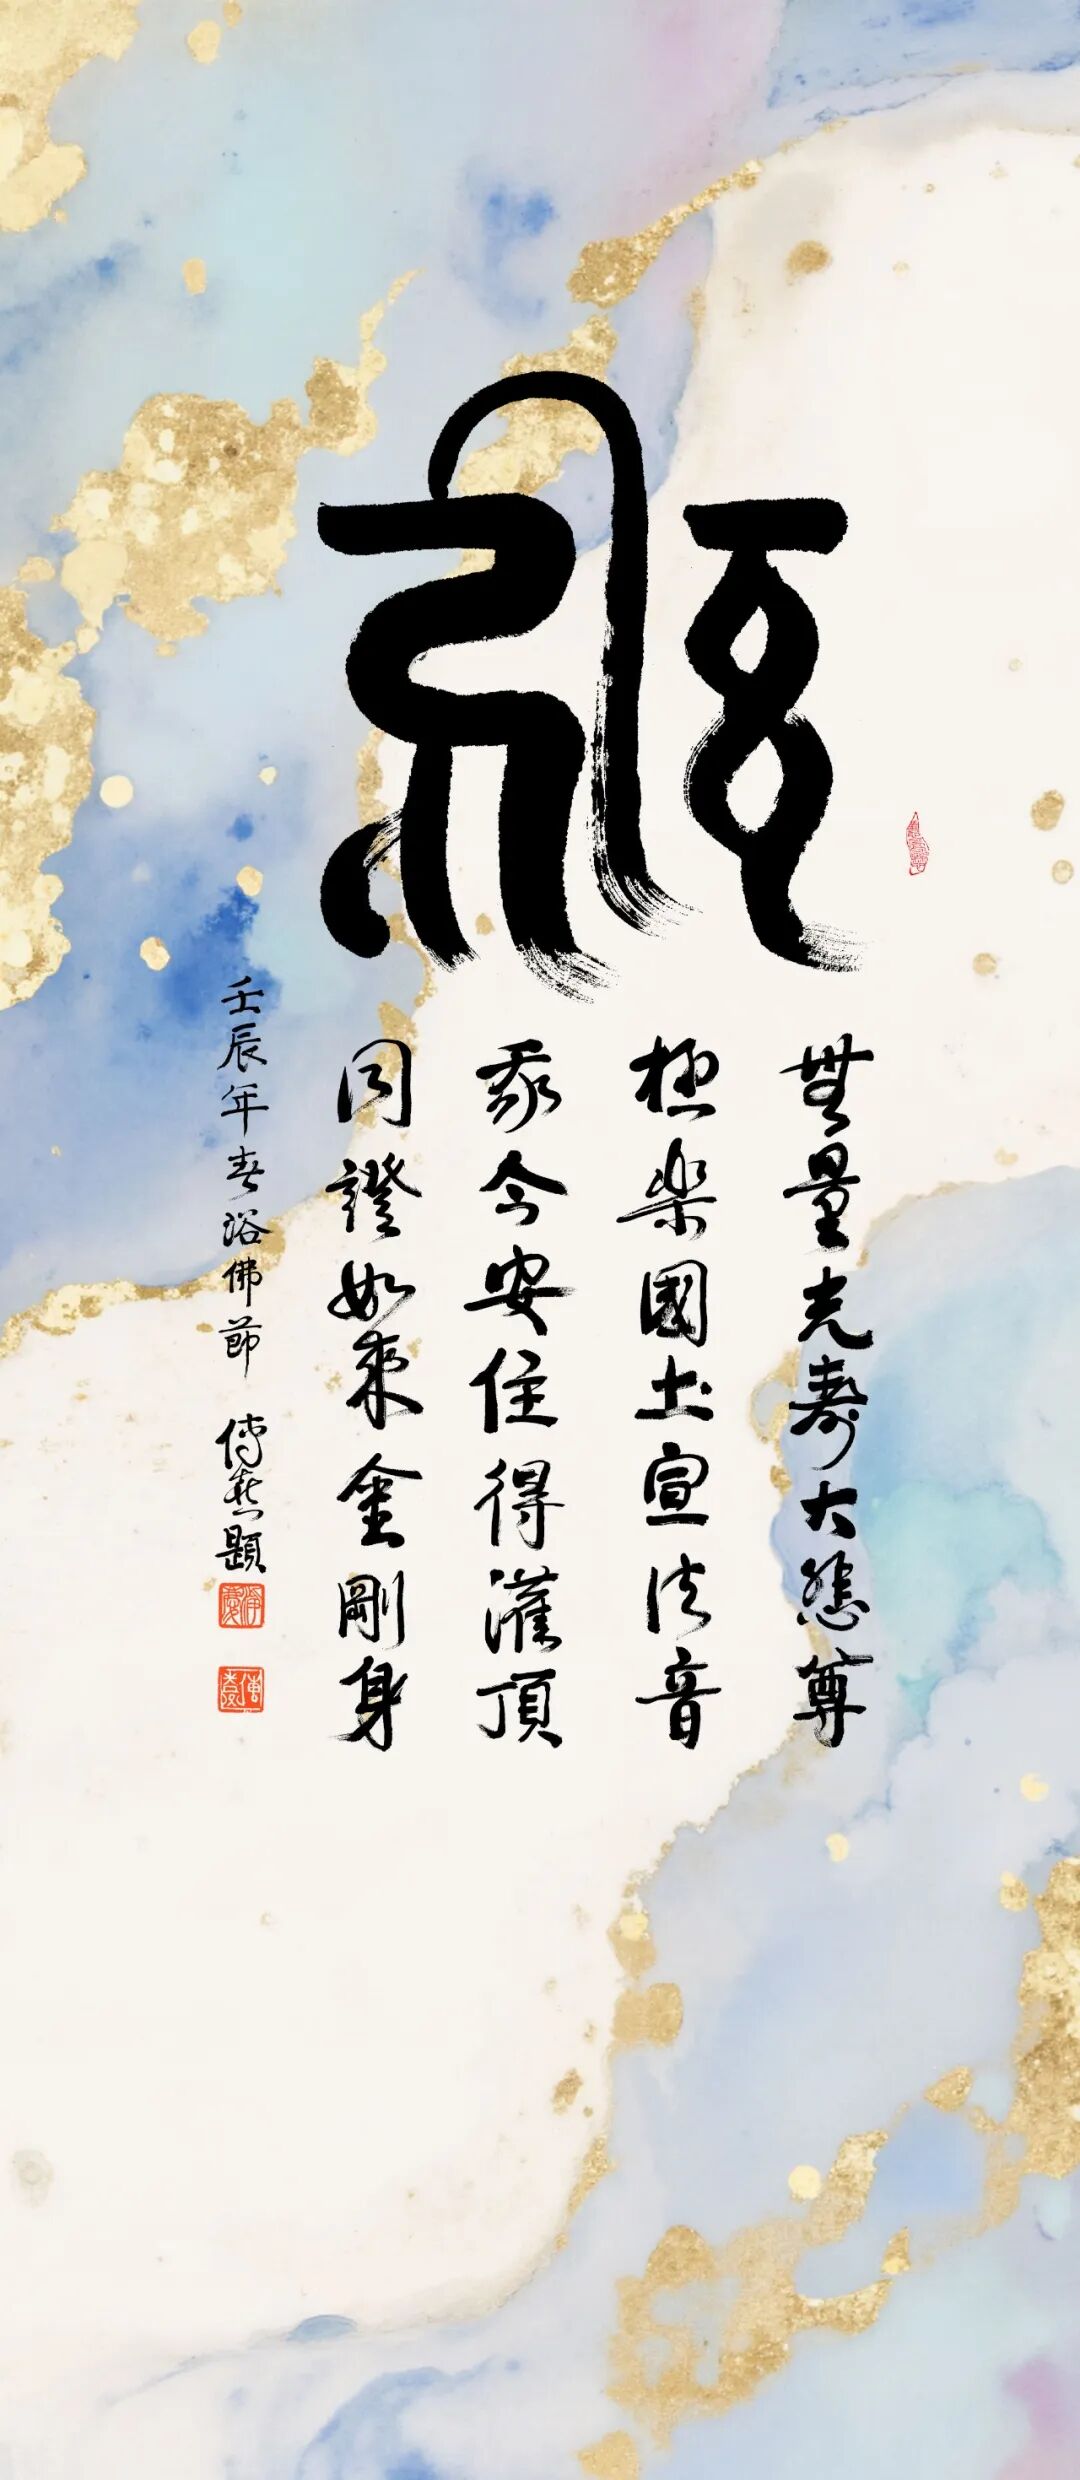 𑖮𑖿𑖨𑖱𑖾
無量光壽大慈尊
極楽國土宣法音
我今安住得灌頂
同證如來金剛身
壬辰年春浴佛節 傅 題